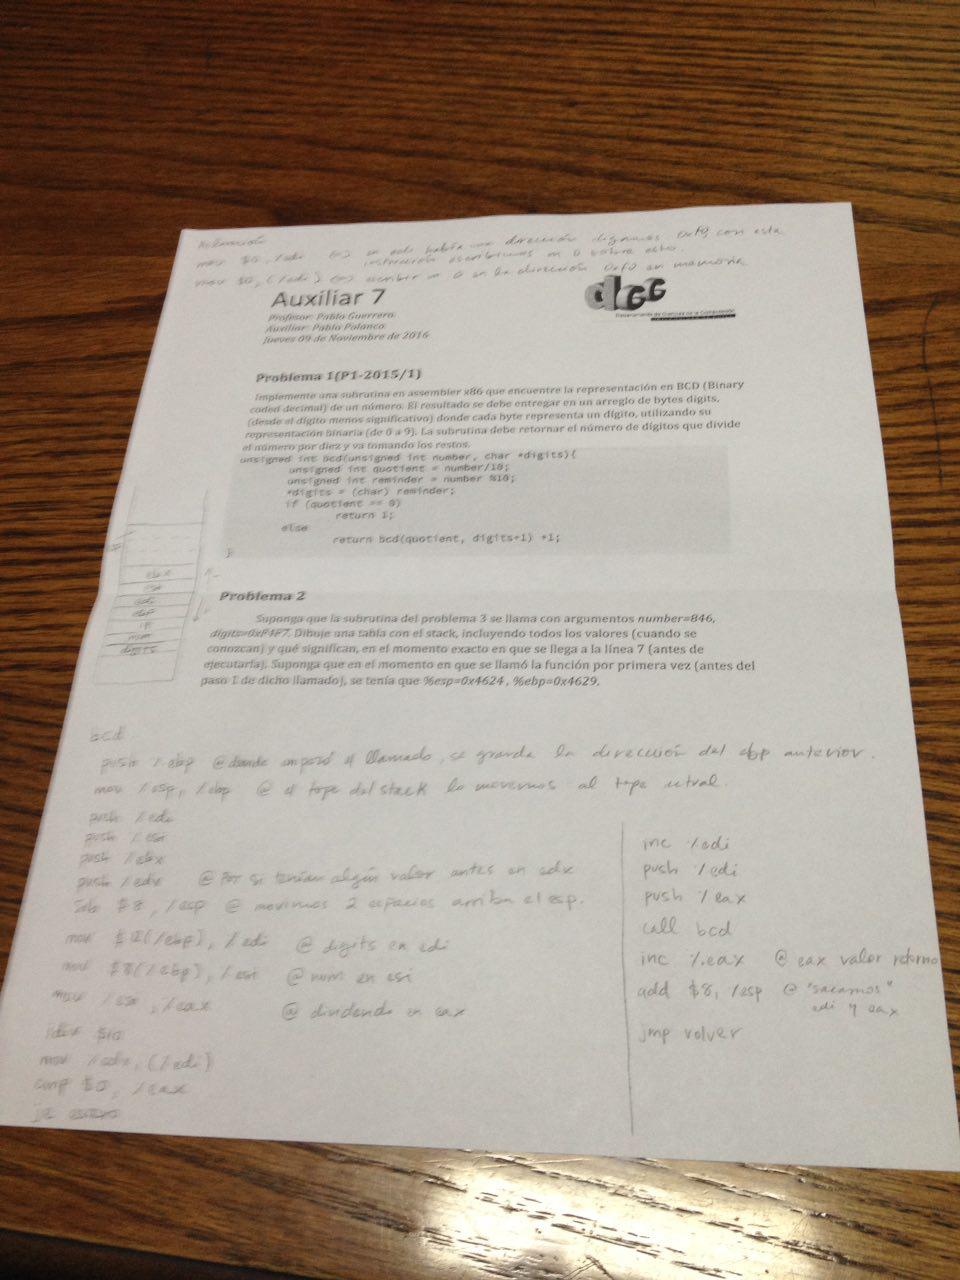 mov $0, %edi en edi había una dirección digamos 0xf0 con esta
instrucción escribimos un 0 sobre esto.
mov $0, (%edi) escribir un 0 en la dirección 0xf0 en memoria
Auxiliar 7
dcc
Profesor: Pablo Guerrero.
Departamento de Ciencias de la Computación
Auxiliar: Pablo Polanco.
Jueves 09 de Noviembre de 2016
Problema 1(P1-2015/1)
Implemente una subrutina en assembler x86 que encuentre la representación en BCD (Binary
coded decimal) de un número. El resultado se debe entregar en un arreglo de bytes digits,
(desde el dígito menos significativo) donde cada byte representa un dígito, utilizando su
representación binaria (de 0 a 9). La subrutina debe retornar el número de dígitos que divide
el número por diez y va tomando los restos.
unsigned int bcd(unsigned int number, char *digits){
unsigned int quotient = number/10;
unsigned int reminder = number %10;
*digits = (char) reminder;
if (quotient == 0)
return 1;
else
return bcd(quotient, digits+1) +1;
}
ebx
esi
edi
ebp
num
digits
Problema 2
Suponga que la subrutina del problema 3 se llama con argumentos number=846,
digits=0xF4F7. Dibuje una tabla con el stack, incluyendo todos los valores (cuando se
conozcan) y qué significan, en el momento exacto en que se llega a la línea 7 (antes de
ejecutarla). Suponga que en el momento en que se llamó la función por primera vez (antes del
paso 1 de dicho llamado), se tenía que %esp=0x4624 , %ebp=0x4629.
bcd
push %ebp @ donde empezó el llamado, se guarda la dirección del ebp anterior.
mov %esp, %ebp @ el tope del stack lo movemos al tope actual.
push %edi
push %esi
push %ebx
push %edx @ Por si tenían algún valor antes en edx
sub $8, %esp @ movimos 2 espacios arriba el esp.
mov $12(%ebp), %edi @ digits en edi
mov $8(%ebp), %esi @ num en esi
mov %esi, %eax @ dividendo en eax
idiv $10
mov %edx, (%edi)
cmp $0, %eax
je
inc %edi
push %edi
push %eax
call bcd
inc %eax @ eax valor retorno
add $8, %esp @ "sacamos"
edi y eax
jmp volver